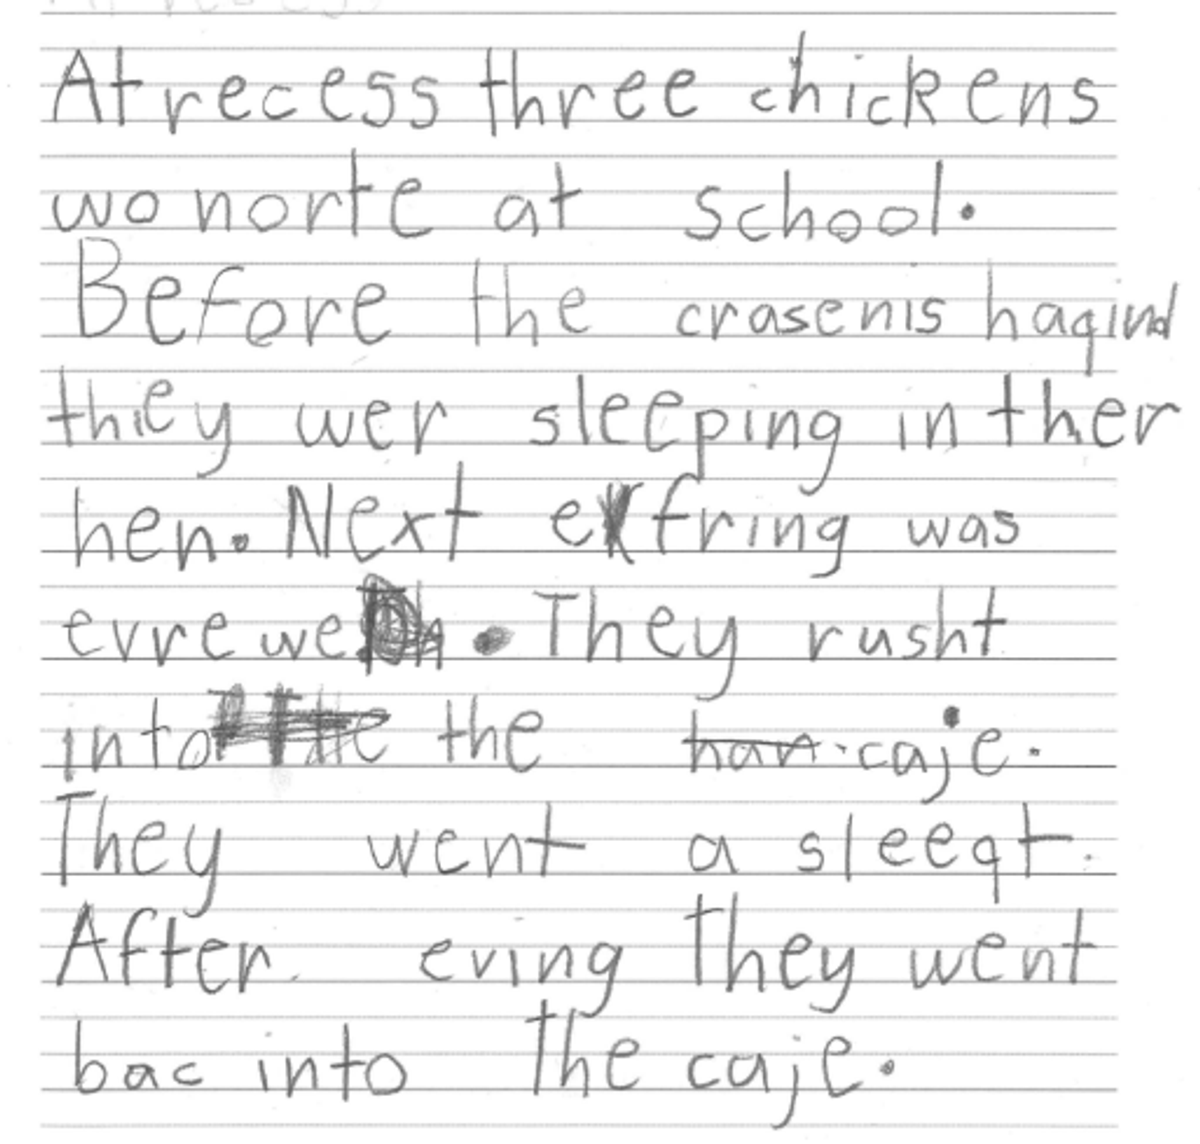 At recess three chickens
wo norte at school.
Before the crasenis hagind
thiey wer sleeping in ther
hen. Next efring was
evre we. They rusht
into the han caje.
They went a sleeqt.
After eving they went
bac into the caje.